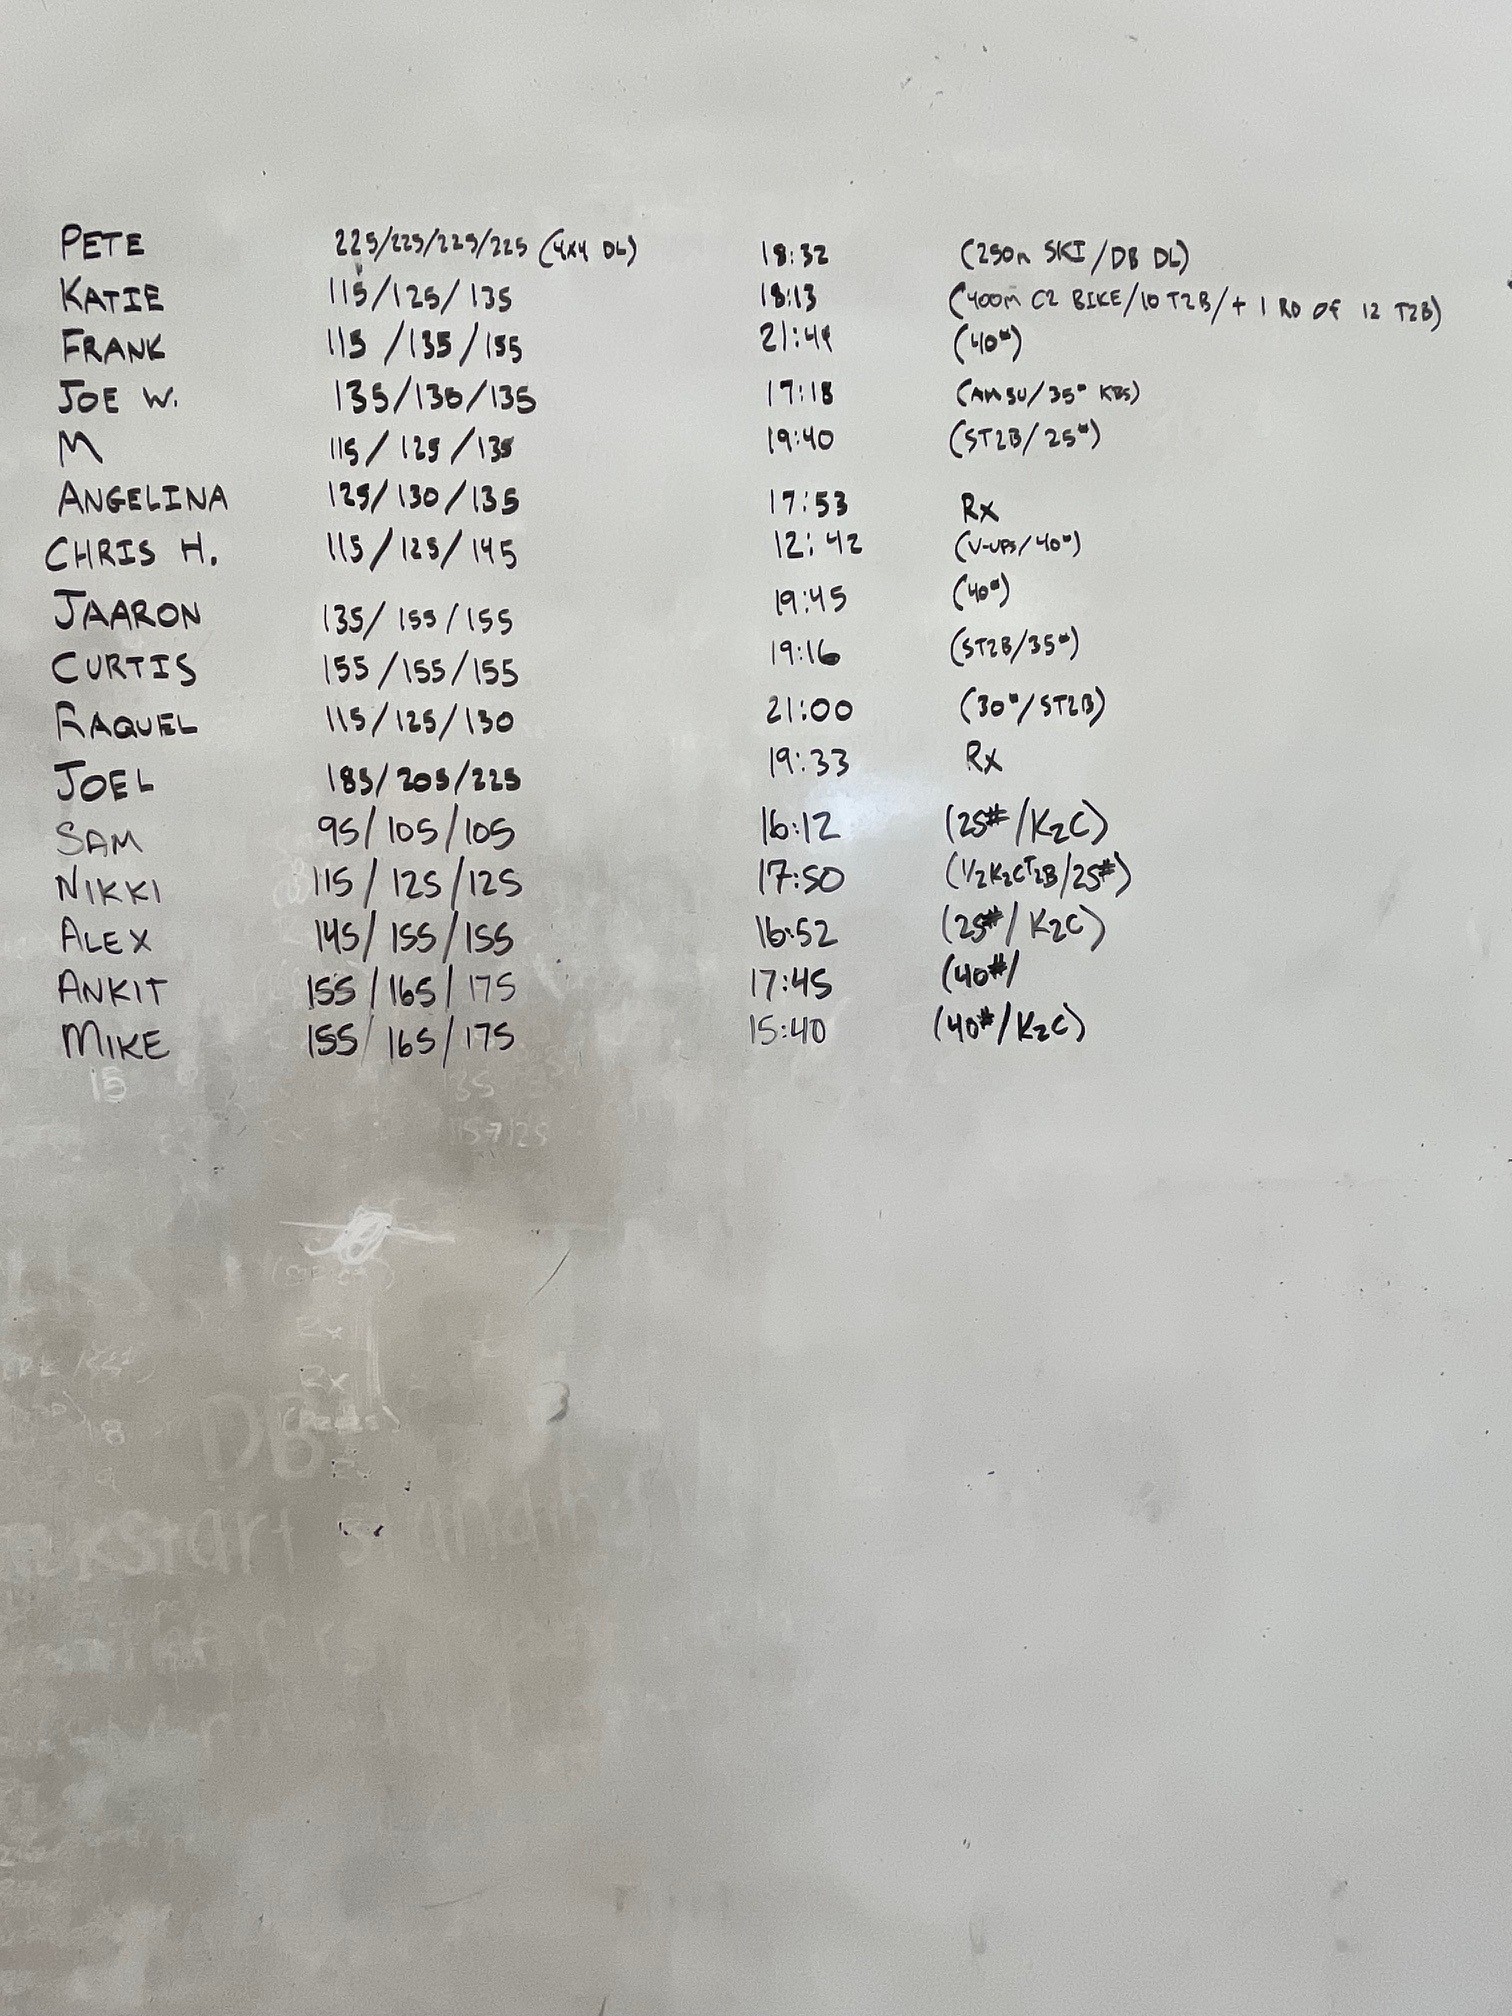 PETE 225/225/225/225 (4x4 DL) 18:32 (250m SKI/DB DL)
KATIE 115/125/135 18:13 (400m C2 BIKE/10 T2B/+ 1 RD OF 12 T2B)
FRANK 115/135/155 (40#)
JOE W. 135/130/135 17:18 (AMSU/35# KBS)
M 115/125/135 19:40 (ST2B/25#)
ANGELINA 125/130/135 17:53 Rx
CHRIS H. 115/125/145 12:42 (V-UPS/40#)
JAARON 135/155/155 19:45 (40#)
CURTIS 155/155/155 19:16 (ST2B/35#)
RAQUEL 115/125/130 21:00 (30#/ST2B)
JOEL 185/205/225 19:33 Rx
SAM 95/105/105 16:12 (25#/K2C)
NIKKI 115/125/125 17:50 (1/2K2CT2B/25#)
ALEX 145/155/155 16:52 (25#/K2C)
ANKIT 155/165/175 17:45 (40#/
MIKE 155/165/175 15:40 (40#/K2C)
15
35
115/125
Rx
Rx
18
DB